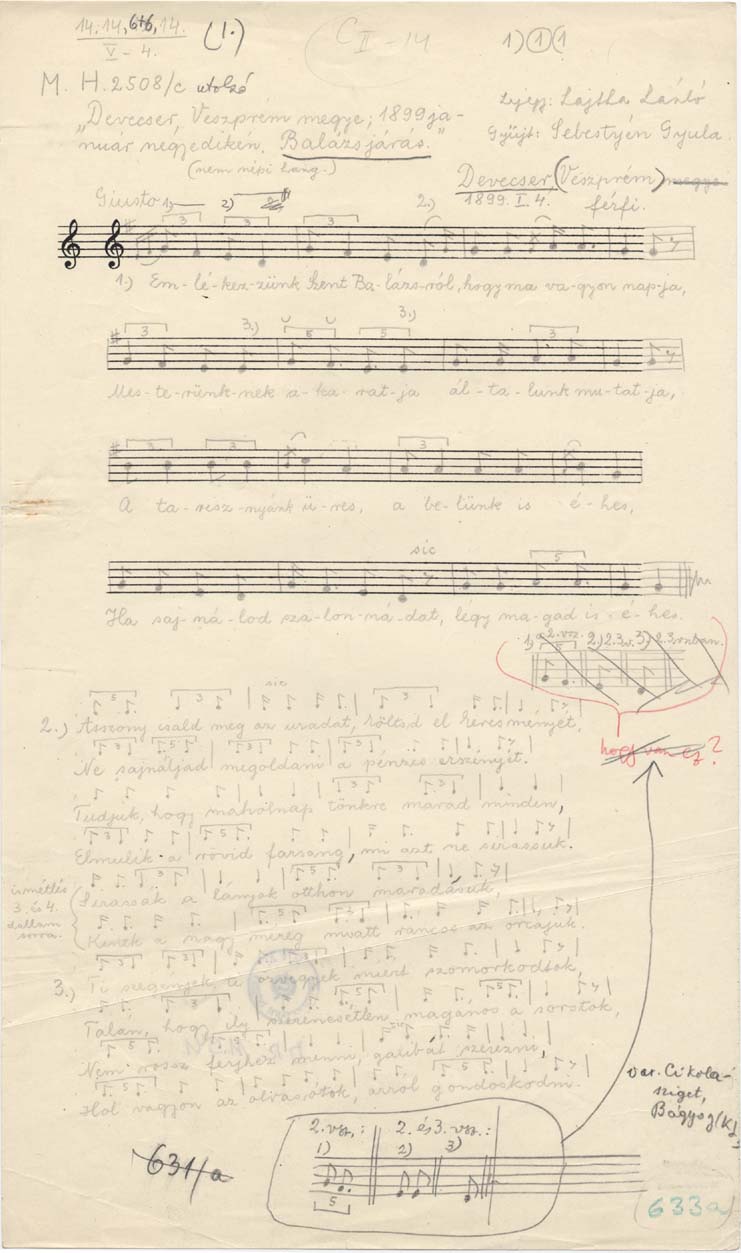 14. 14, 6+6, 14.
V – 4.
(1.)
C II – 14
1) 1 1
M. H. 2508/c utolsó
"Devecser, Veszprém megye; 1899 ja-
nuár negyedikén. Balázsjárás."
(nem népi hang.)
Lejegy: Lajtha László
Gyűjt: Sebestyén Gyula
Devecser, (Veszprém) megye
1899. I. 4. férfi.
Giusto 1) 2) 2.)
3 3 3
1.) Em-lé-kez-zünk Szent Ba-lázs-ról, hogy ma va-gyon nap-ja,
3 3.) 5 5 3.) 3
Mes-te-rünk-nek a-ka-rat-ja ál-ta-lunk mu-tat-ja,
3 3 3
A ta-risz-nyánk ü-res, a be-lünk is é-hes,
sic 5
Ha saj-ná-lod sza-lon-ná-dat, légy ma-gad is é-hes.
1) 2. vsz. 2.) 2.3 v. 3.) 2.3. vszban.
hogy van ez?
sic
2.) Asszony csald meg az uradat, költsd el keresményét,
Ne sajnáljad megoldani a pénzes erszényét.
Tudjuk, hogy maholnap tönkre marad minden,
Elmulik a rövid farsang, mi azt ne sirassuk.
ismétlés
3. és 4.
dallam
sorra.
Sirassák a lányok otthon maradásuk,
Kiknek a nagy méreg miatt ráncos az orcájuk.
3.) Ti szegények, ti özvegyek miért szomorkodtok,
Talán, hogy ily szerencsétlen magános a sorstok,
Nem rossz férjhez menni, galibát szerezni,
Hol vagyon az olvasótok, arról gondoskodni.
var. Cikola-
sziget,
Bágyog (K)
2. vsz.: 2. és 3. vsz.:
1) 2) 3)
5
631/a
(633a)